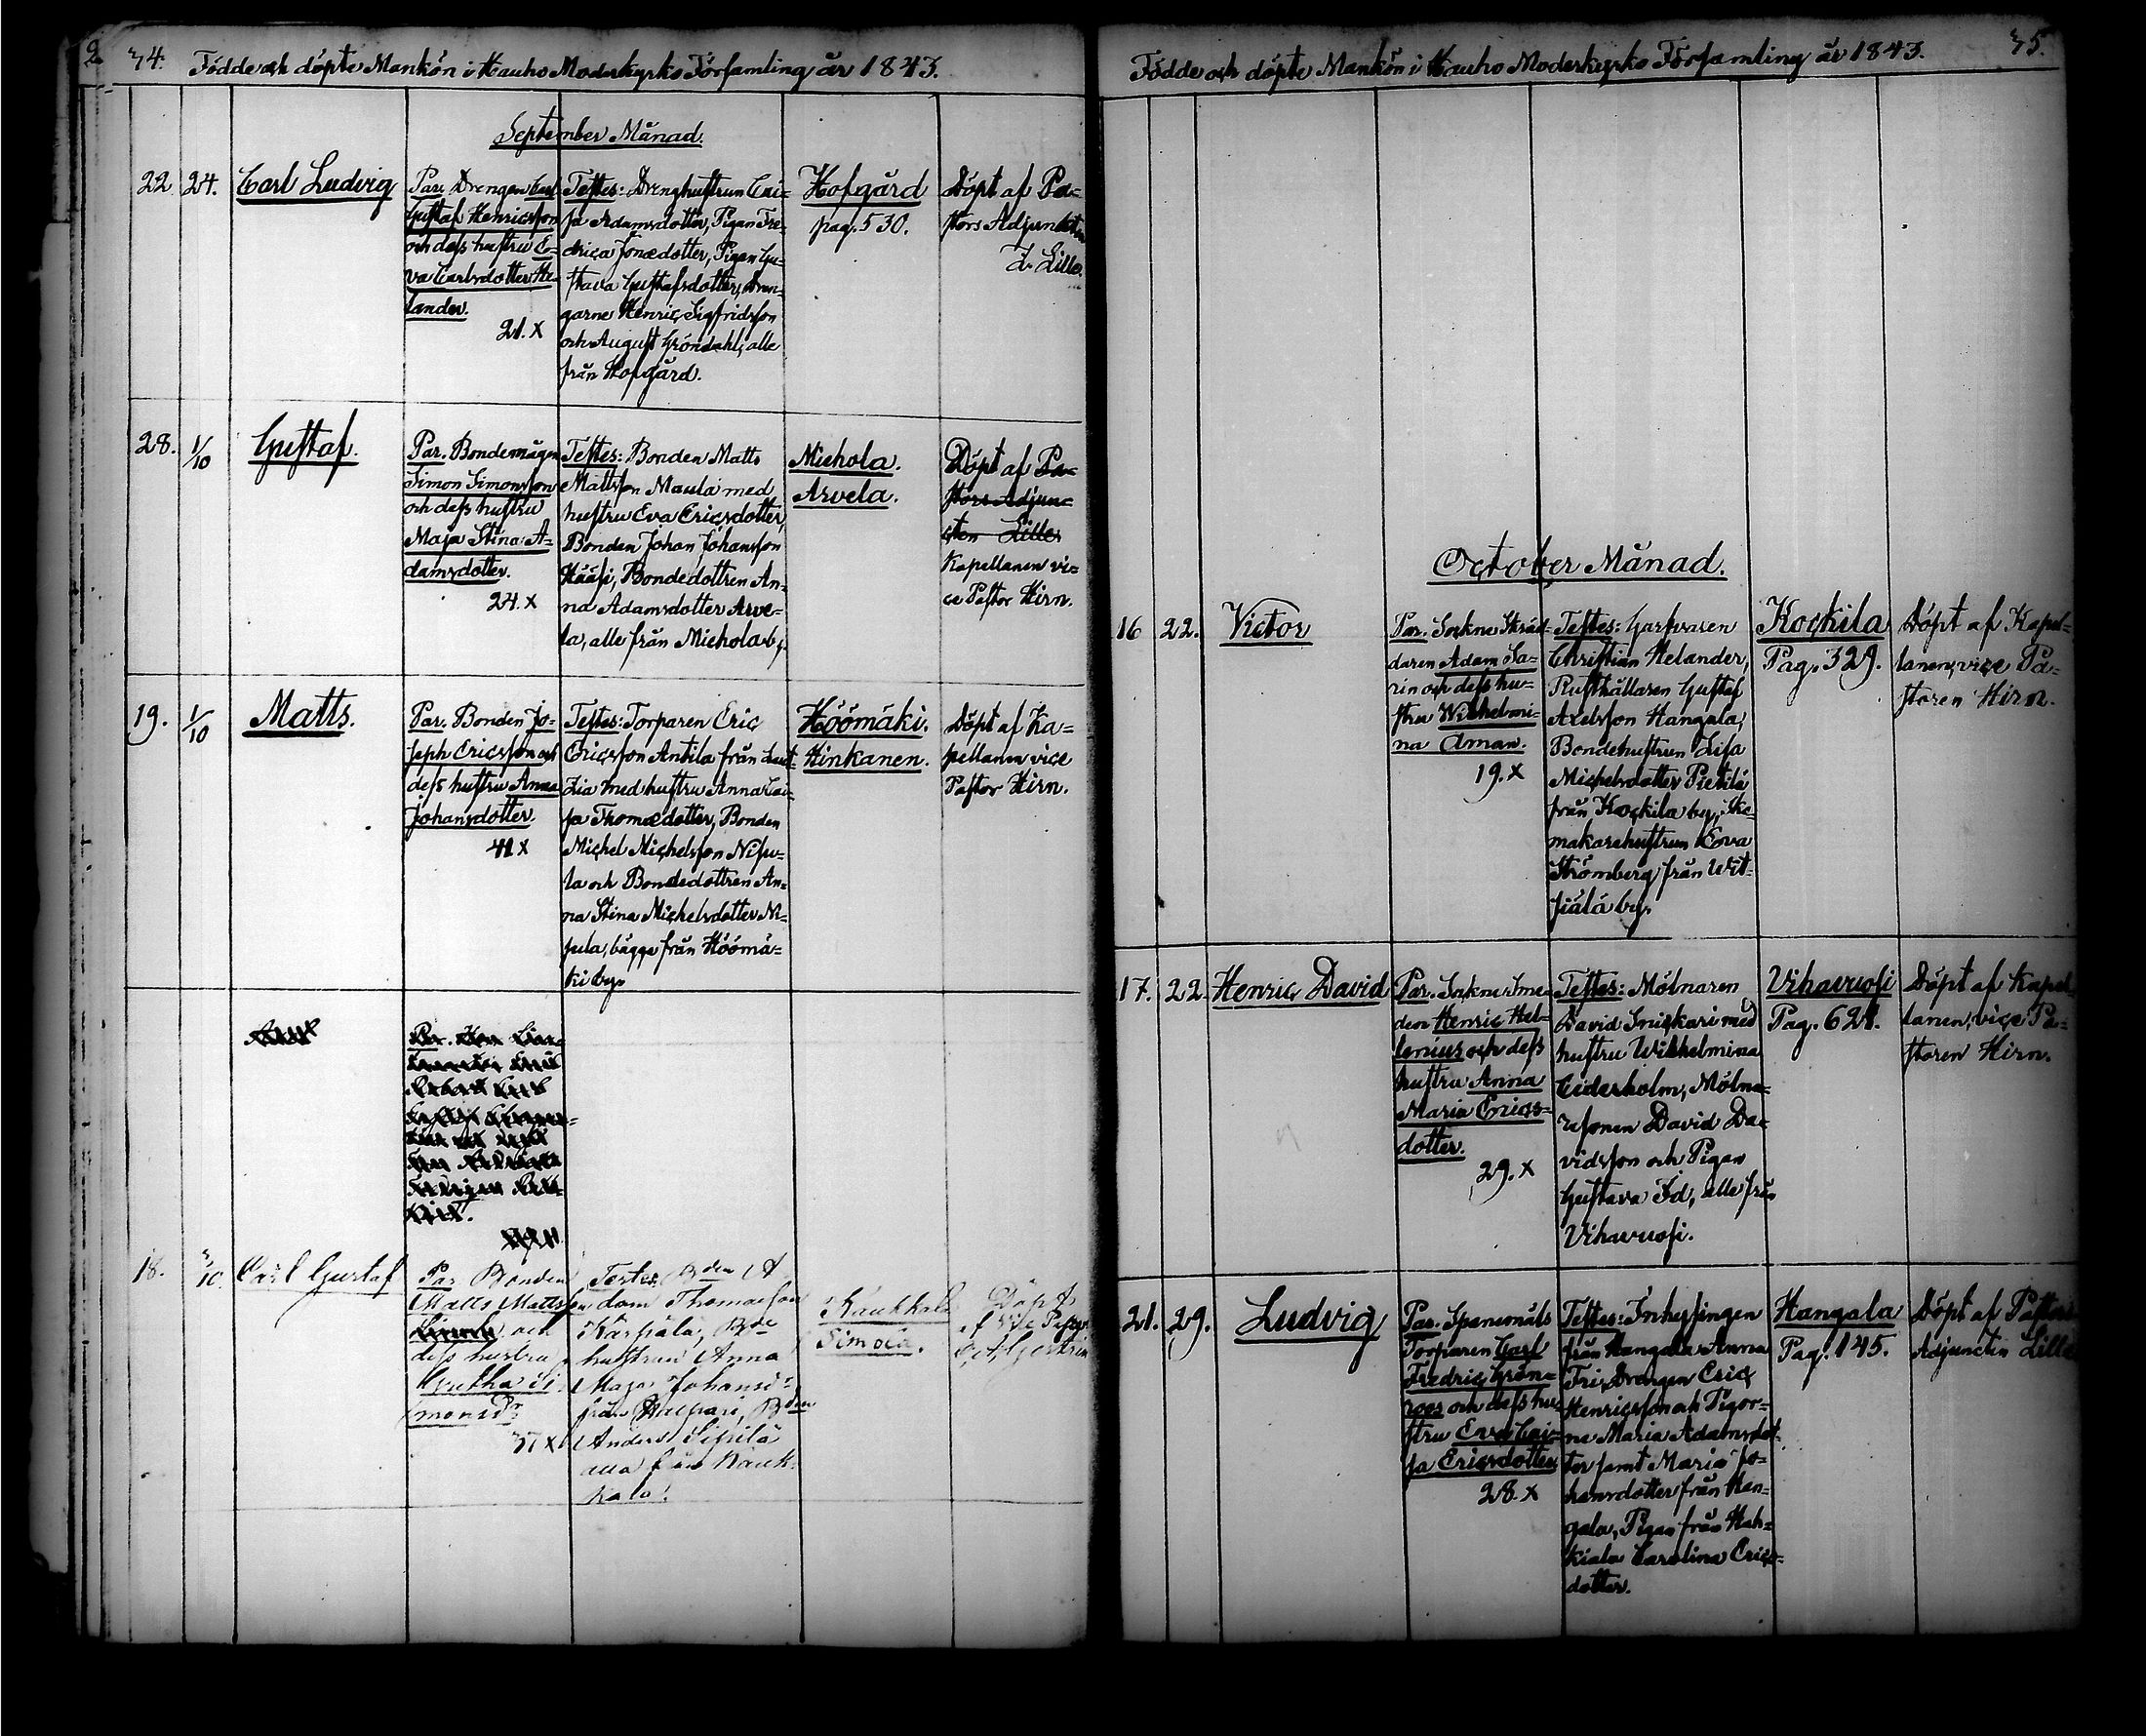 74. Födde och döpte Mankön i Hauho Moderkyrko Församling år 1843.
September Månad.
22. 24. Carl Ludvig
Par. Drengen Carl
Gustaf Henricsson
och dess hustru E=
va Carlsdotter He=
lander.
21. x
Testes: Drenghustrun Cai=
sa Adamsdotter, Pigan Fre=
drica Jonædotter, Pigan Gu=
stava Gustafsdotter, Dren=
garne Henric Sigfridsson
och August Gröndahl, alle
från Hofgård.
Hofgård
pag. 530.
Döpt af Pa=
stors Adjuncten
Lille.
28. 1/10 Gustaf.
Par. Bondemågen
Simon Simonsson
och dess hustru
Maja Stina A=
damsdotter.
24. x
Testes: Bonden Matts
Mattsson Maula med
hustru Eva Ericsdotter,
Bonden Johan Johansson
Hääsi, Bondedottren An=
na Adamsdotter Arve=
la, alle från Miehola by.
Miehola.
Arvela.
Döpt af Pa=
stors Adjun=
cten Lille
Kapellanen vi=
ce Pastor Hirn.
19. 1/10 Matts.
Par. Bonden Jo=
seph Ericsson och
dess hustru Anna
Johansdotter.
41 x
Testes: Torparen Eric
Ericsson Antila från Laut=
zia med hustru Anna Cai=
sa Thomædotter, Bonden
Michel Michelsson Nisu=
la och Bondedottren An=
na Stina Michelsdotter Ni=
sula, bägge från Höömä=
ki by.
Höömäki.
Hinkanen.
Döpt af Ka=
pellanen vice
Pastor Hirn.
Par.
18. 3/10. Carl Gustaf
Par Bonden
Matts Mattsson
och
dess hustru
Si
monsdr
37 x
Testes Bden A
dam Thomasson
Kärpälä, Bde
hustrun Anna
Maja Johansdr
från Bden
Anders Sipilä
alla från Kauk
kala.
Kaukkala
Simola.
Döpt
af Vice Pastor
75.
Födde och döpte Mankön i Hauho Moderkyrko Församling år 1843.
October Månad.
16 22. Victor
Par. Sockne Skräd=
daren Adam Sa=
rin och dess hu=
stru Wilhelmi=
na Aman.
19. x
Testes: Garfvaren
Christian Helander,
Rusthållaren Gustaf
Axelsson Hangala,
Bondehustrun Lisa
Michelsdotter Pietilä
från Kockila by, Sko=
makarehustrun Eva
Strömberg från Wit=
siälä by.
Kockila
Pag. 329.
Döpt af Kapel=
lanen, vice Pa=
storen Hirn.
17. 22. Henric David
Par. Sockne Sme=
den Henric Hel=
lenius och dess
hustru Anna
Maria Erics=
dotter.
29. x
Testes: Mölnaren
David Snickari med
hustru Wilhelmina
Cederholm, Mölna=
resonen David Da=
vidsson och Pigan
Gustava Id, alle från
Vihavuosi.
Vihavuosi
Pag. 621.
Döpt af Kapel=
lanen, vice Pa=
storen Hirn.
21. 29. Ludvig
Par. Spanmåls
Torparen Carl
Fredric Grön=
roos och dess hu=
stru Eva Cai=
sa Ericsdotter
28. x
Testes: Inhysingen
från Hangala Anna
Fri, Drengen Eric
Henricsson och Pigor=
na Maria Adamsdot=
ter samt Maria Jo=
hansdotter från Han=
gala, Pigan från Hah=
kiala Carolina Erics=
dotter.
Hangala
Pag. 145.
Döpt af Pastors
Adjuncten Lille